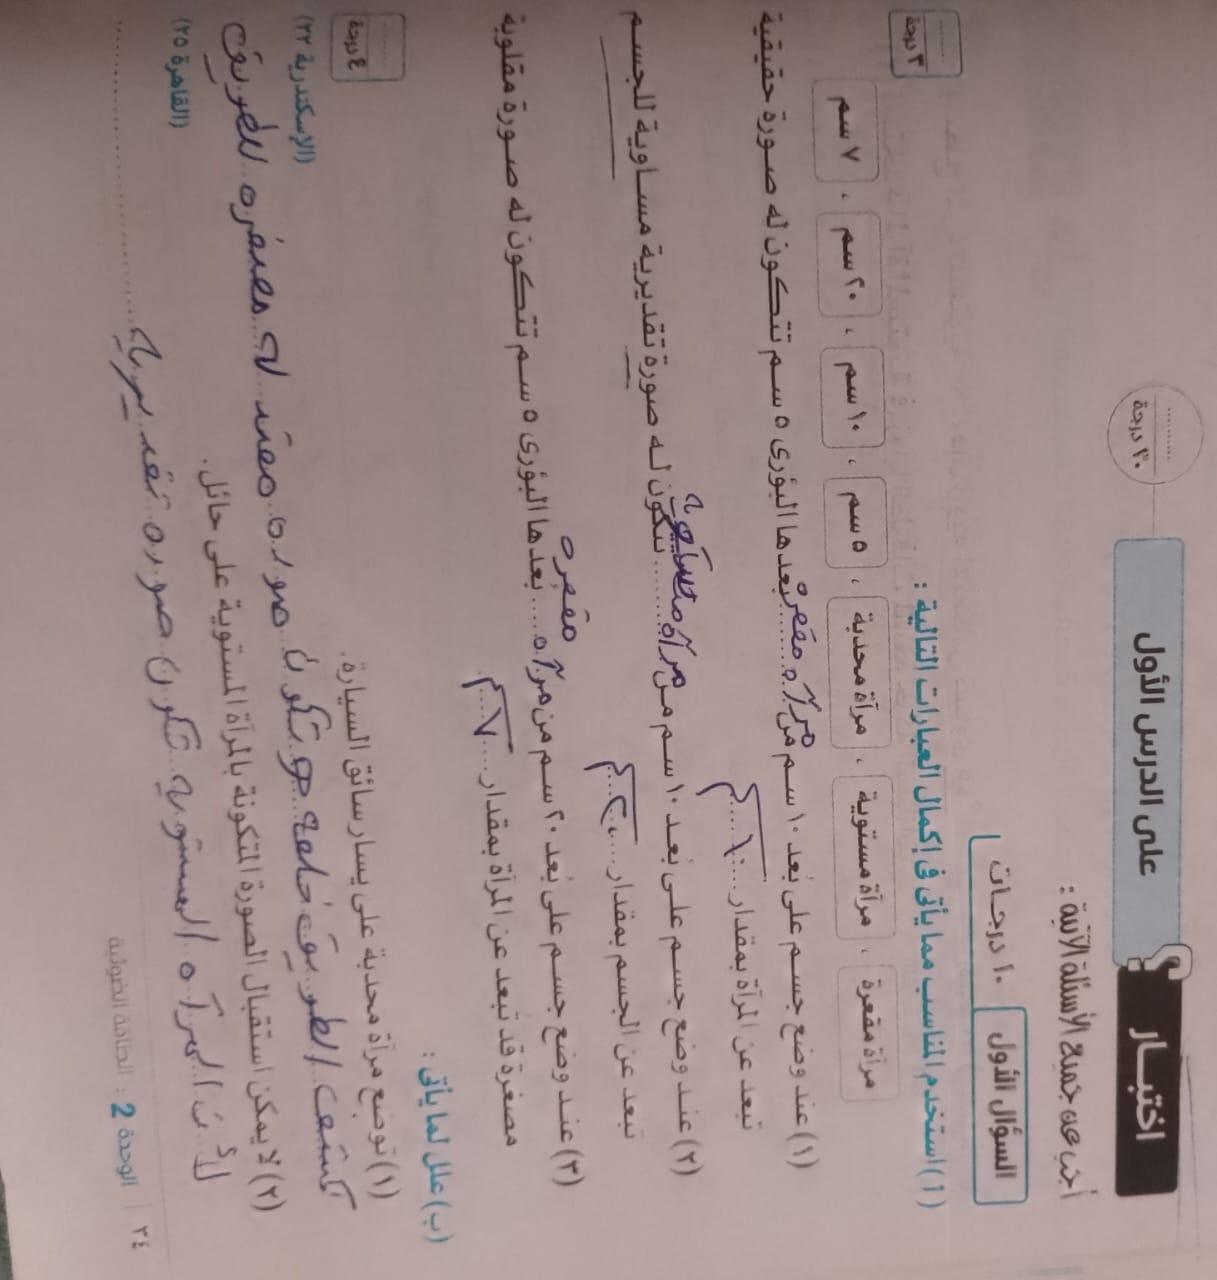 ........
٣٠ درجة
اختبـار ؟ على الدرس الأول
أجب عن جميع الأسئلة الآتية :
السؤال الأول ١٠ درجات
(أ) استخدم المناسب مما يأتى فى إكمال العبارات التالية :
........
٣ درجة
مرآة مقعرة ، مرآة مستوية ، مرآة محدبة ، ٥ سم ، ١٠ سم ، ٢٠ سم ، ٧ سم
(١) عند وضع جسم على بُعد ١٠ سم من مرآه مقعره بُعدها البؤرى ٥ سم تتكون له صورة حقيقية
تبعد عن المرآة بمقدار ١٠ سم
(٢) عند وضع جسم على بُعد ١٠ سم من مرآة تتكون له صورة تقديرية مساوية للجسم
تبعد عن الجسم بمقدار ٢٠ سم
(٣) عند وضع جسم على بُعد ٢٠ سم من مرآه مقعره بُعدها البؤرى ٥ سم تتكون له صورة مقلوبة
مصغرة قد تبعد عن المرآة بمقدار ٧ سم
(ب) علل لما يأتى :
........
٤ درجة
(١) توضع مرآة محدبة على يسار سائق السيارة.
(الإسكندرية ٢٢)
لكشف الطريق خلفه وتكون صوره معتدله مصغره للطريق
(٢) لا يمكن استقبال الصورة المتكونة بالمرآة المستوية على حائل.
(القاهرة ٢٥)
لأن المرآه المستويه تكون صوره تقديريه
٣٤ | الوحدة 2 : الطاقة الضوئية